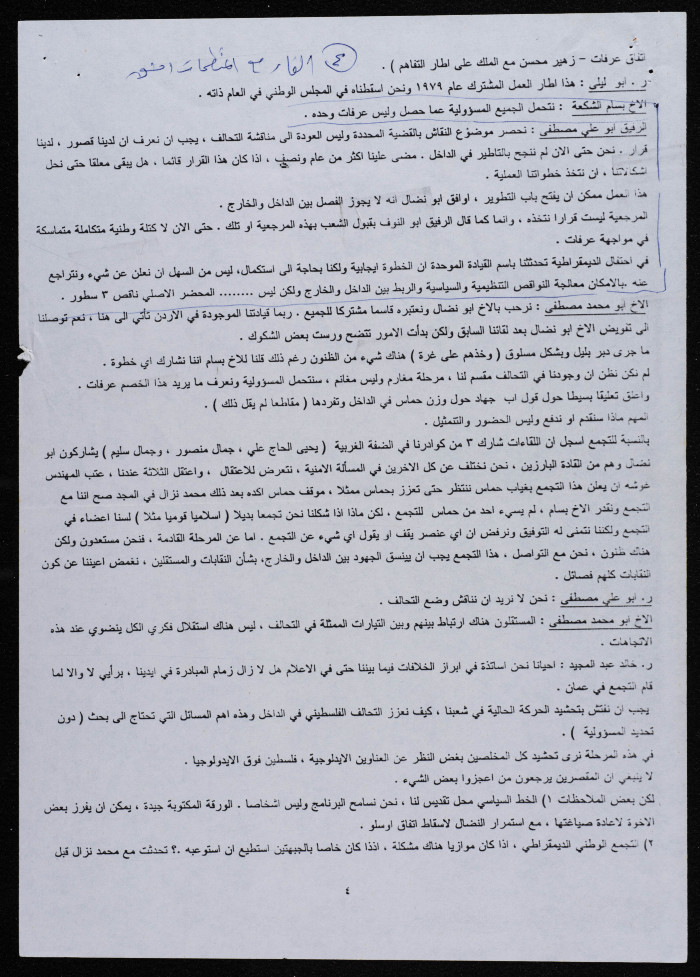 اللقاء مع المنظمات
اتفاق عرفات – زهير محسن مع الملك على اطار التفاهم ) .
ر . ابو ليلى : هذا اطار العمل المشترك عام ١٩٧٩ ونحن اسقطناه في المجلس الوطني في العام ذاته .
الاخ بسام الشكعة : نتحمل الجميع المسؤولية عما حصل وليس عرفات وحده .
الرفيق ابو علي مصطفى : نحصر موضوع النقاش بالقضية المحددة وليس العودة الى مناقشة التحالف ، يجب ان نعرف ان لدينا قصور ، لدينا
قرار . نحن حتى الان لم ننجح بالتاطير في الداخل . مضى علينا اكثر من عام ونصف ، اذا كان هذا القرار قائما ، هل يبقى معلقا حتى نحل
اشكالاتنا ، ان نتخذ خطواتنا العملية .
هذا العمل ممكن ان يفتح باب التطوير ، اوافق ابو نضال انه لا يجوز الفصل بين الداخل والخارج .
المرجعية ليست قرارا نتخذه ، وانما كما قال الرفيق ابو النوف بقبول الشعب بهذه المرجعية او تلك . حتى الان لا كتلة وطنية متكاملة متماسكة
في مواجهة عرفات .
في احتفال الديمقراطية تحدثتنا باسم القيادة الموحدة ان الخطوة ايجابية ولكنا بحاجة الى استكمال، ليس من السهل ان نعلن عن شيء ونتراجع
عنه .بالامكان معالجة النواقص التنظيمية والسياسية والربط بين الداخل والخارج ولكن ليس ........ المحضر الاصلي ناقص ٣ سطور .
الاخ ابو محمد مصطفى : نرحب بالاخ ابو نضال ونعتبره قاسما مشتركا للجميع . ربما قيادتنا الموجودة في الاردن تأتي الى هنا ، نعم توصلنا
الى تفويض الاخ ابو نضال بعد لقائنا السابق ولكن بدأت الامور تتضح ورست بعض الشكوك .
ما جرى دبر بليل وبشكل مسلوق ( وخذهم على غرة ) هناك شيء من الظنون رغم ذلك قلنا للاخ بسام اننا نشارك اي خطوة .
لم نكن نظن ان وجودنا في التحالف مقسم لنا ، مرحلة مغارم وليس مغانم ، سنتحمل المسؤولية ونعرف ما يريد هذا الخصم عرفات .
واعلق تعليقا بسيطا حول قول اب جهاد حول وزن حماس في الداخل وتفردها ( مقاطعا لم يقل ذلك ) .
المهم ماذا سنقدم او ندفع وليس الحضور والتمثيل .
بالنسبة للتجمع اسجل ان اللقاءات شارك ٣ من كوادرنا في الضفة الغربية ( يحيى الحاج علي ، جمال منصور ، وجمال سليم ) يشاركون ابو
نضال وهم من القادة البارزين ، نحن نختلف عن كل الاخرين في المسألة الامنية ، نتعرض للاعتقال ، واعتقل الثلاثة عندنا ، عتب المهندس
غوشه ان يعلن هذا التجمع بغياب حماس ننتظر حتى تعزز بحماس ممثلا ، موقف حماس اكده بعد ذلك محمد نزال في المجد صح اننا مع
التجمع ونقدر الاخ بسام ، لم يسيء احد من حماس للتجمع . لكن ماذا اذا شكلنا نحن تجمعا بديلا ( اسلاميا قوميا مثلا ) لسنا اعضاء في
التجمع ولكننا نتمنى له التوفيق ونرفض ان اي عنصر يقف او يقول اي شيء عن التجمع . اما عن المرحلة القادمة ، فنحن مستعدون ولكن
هناك ظنون ، نحن مع التواصل ، هذا التجمع يجب ان يينسق الجهود بين الداخل والخارج، بشأن النقابات والمستقلين ، نغمض اعيننا عن كون
النقابات كلهم فصائل .
ر. ابو علي مصطفى : نحن لا نريد ان نناقش وضع التحالف .
الاخ ابو محمد مصطفى : المستقلون هناك ارتباط بينهم وبين التيارات الممثلة في التحالف ، ليس هناك استقلال فكري الكل ينضوي عند هذه
الاتجاهات .
ر. خالد عبد المجيد : احيانا نحن اساتذة في ابراز الخلافات فيما بيننا حتى في الاعلام هل لا زال زمام المبادرة في ايدينا ، برأيي لا والا لما
قام التجمع في عمان .
يجب ان نفتش بتحشيد الحركة الحالية في شعبنا ، كيف نعزز التحالف الفلسطيني في الداخل وهذه اهم المسائل التي تحتاج الى بحث ( دون
تحديد المسؤولية ) .
في هذه المرحلة نرى تحشيد كل المخلصين بغض النظر عن العناوين الايدلوجية ، فلسطين فوق الايدولوجيا .
لا ينبغي ان المقصرين يرجعون من اعجزوا بعض الشيء .
لكن بعض الملاحظات ١) الخط السياسي محل تقديس لنا ، نحن نسامح البرنامج وليس اشخاصا . الورقة المكتوبة جيدة ، يمكن ان يفرز بعض
الاخوة لاعادة صياغتها ، مع استمرار النضال لاسقاط اتفاق اوسلو .
٢) التجمع الوطني الديمقراطي ، اذا كان موازيا هناك مشكلة ، اذذا كان خاصا بالجبهتين استطيع ان استوعبه .؟ تحدثت مع محمد نزال قبل
٤